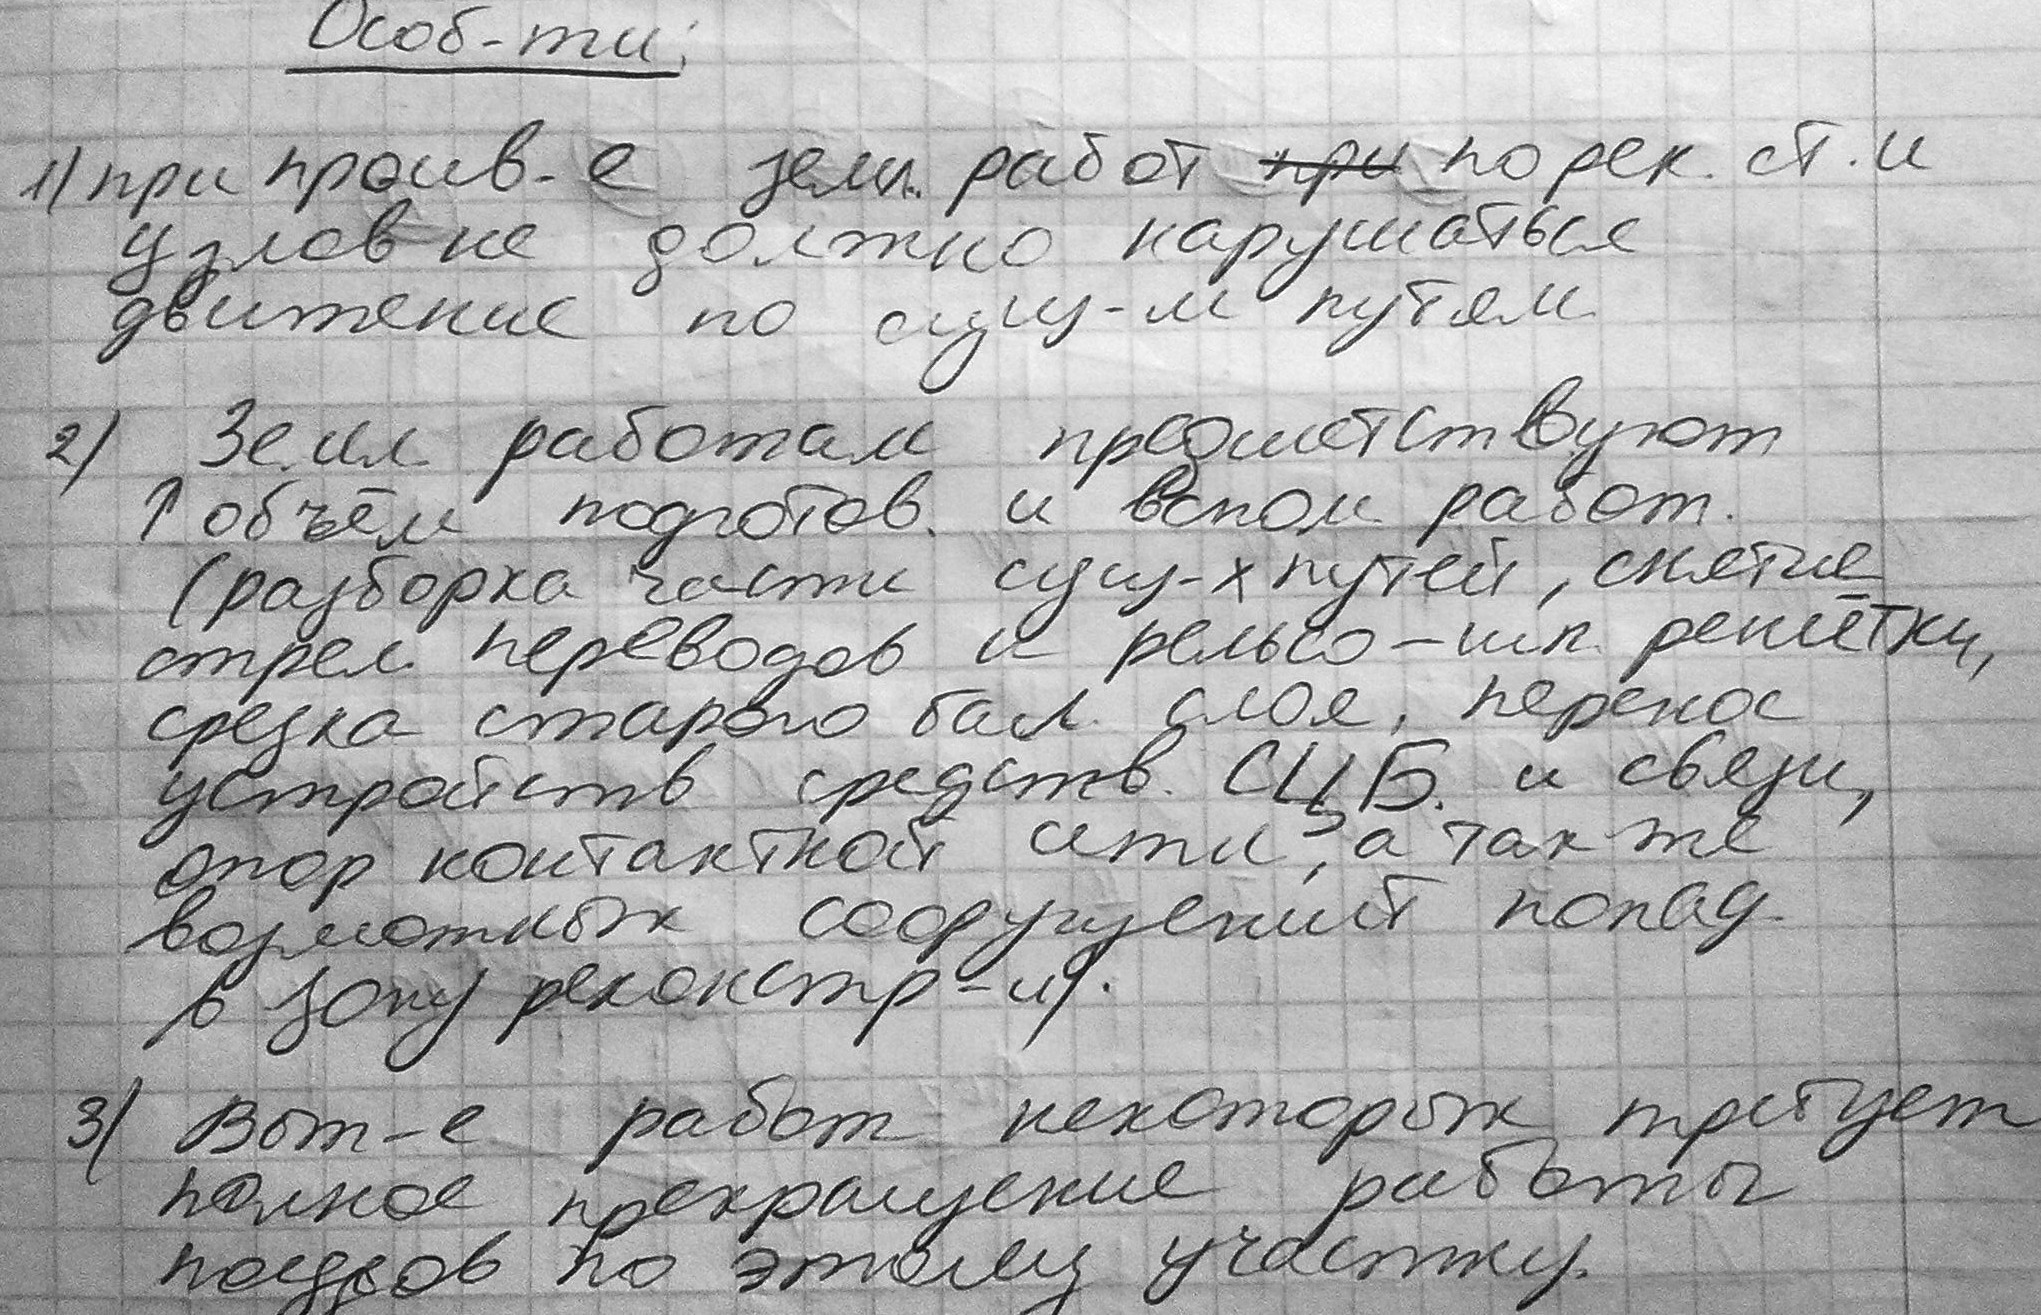 Особ-ти:
1) при произв-е зем. работ при по рек. ст. и
узлов не должно нарушаться
движение по сущ-м путям
2) Земл работам предшетствуют
↑ объём подготов. и вспом работ.
(разборка части сущ-х путей, снятие
стрел. переводов и рельсо-шп. решётки,
срезка старого бал. слоя, перенос
устройств средств. СЦБ. и связи,
опор контактной сети, а так же
возможных сооружений попад.
в зону реконстр-и).
3) Вып-е работ некоторых требует
полное прекращение работы
поездов по этому участку.